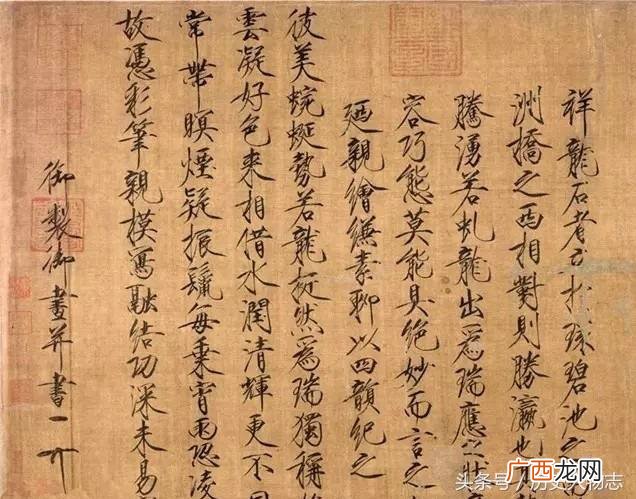 祥龍石者立於環碧池之
洲橋之西相對則勝瀛也
騰湧若虬龍出爲瑞應之狀
容巧態莫能具絕妙而言之
廼親繪縑素聊以四韻紀之
彼美蜿蜒勢若龍挺然爲瑞獨稱
雲凝好色來相借水潤清輝更不
常帶暝煙疑振鬣每乘宵雨恐凌
故憑彩筆親模寫融結功深未易
御製御畫并書
广西龙网